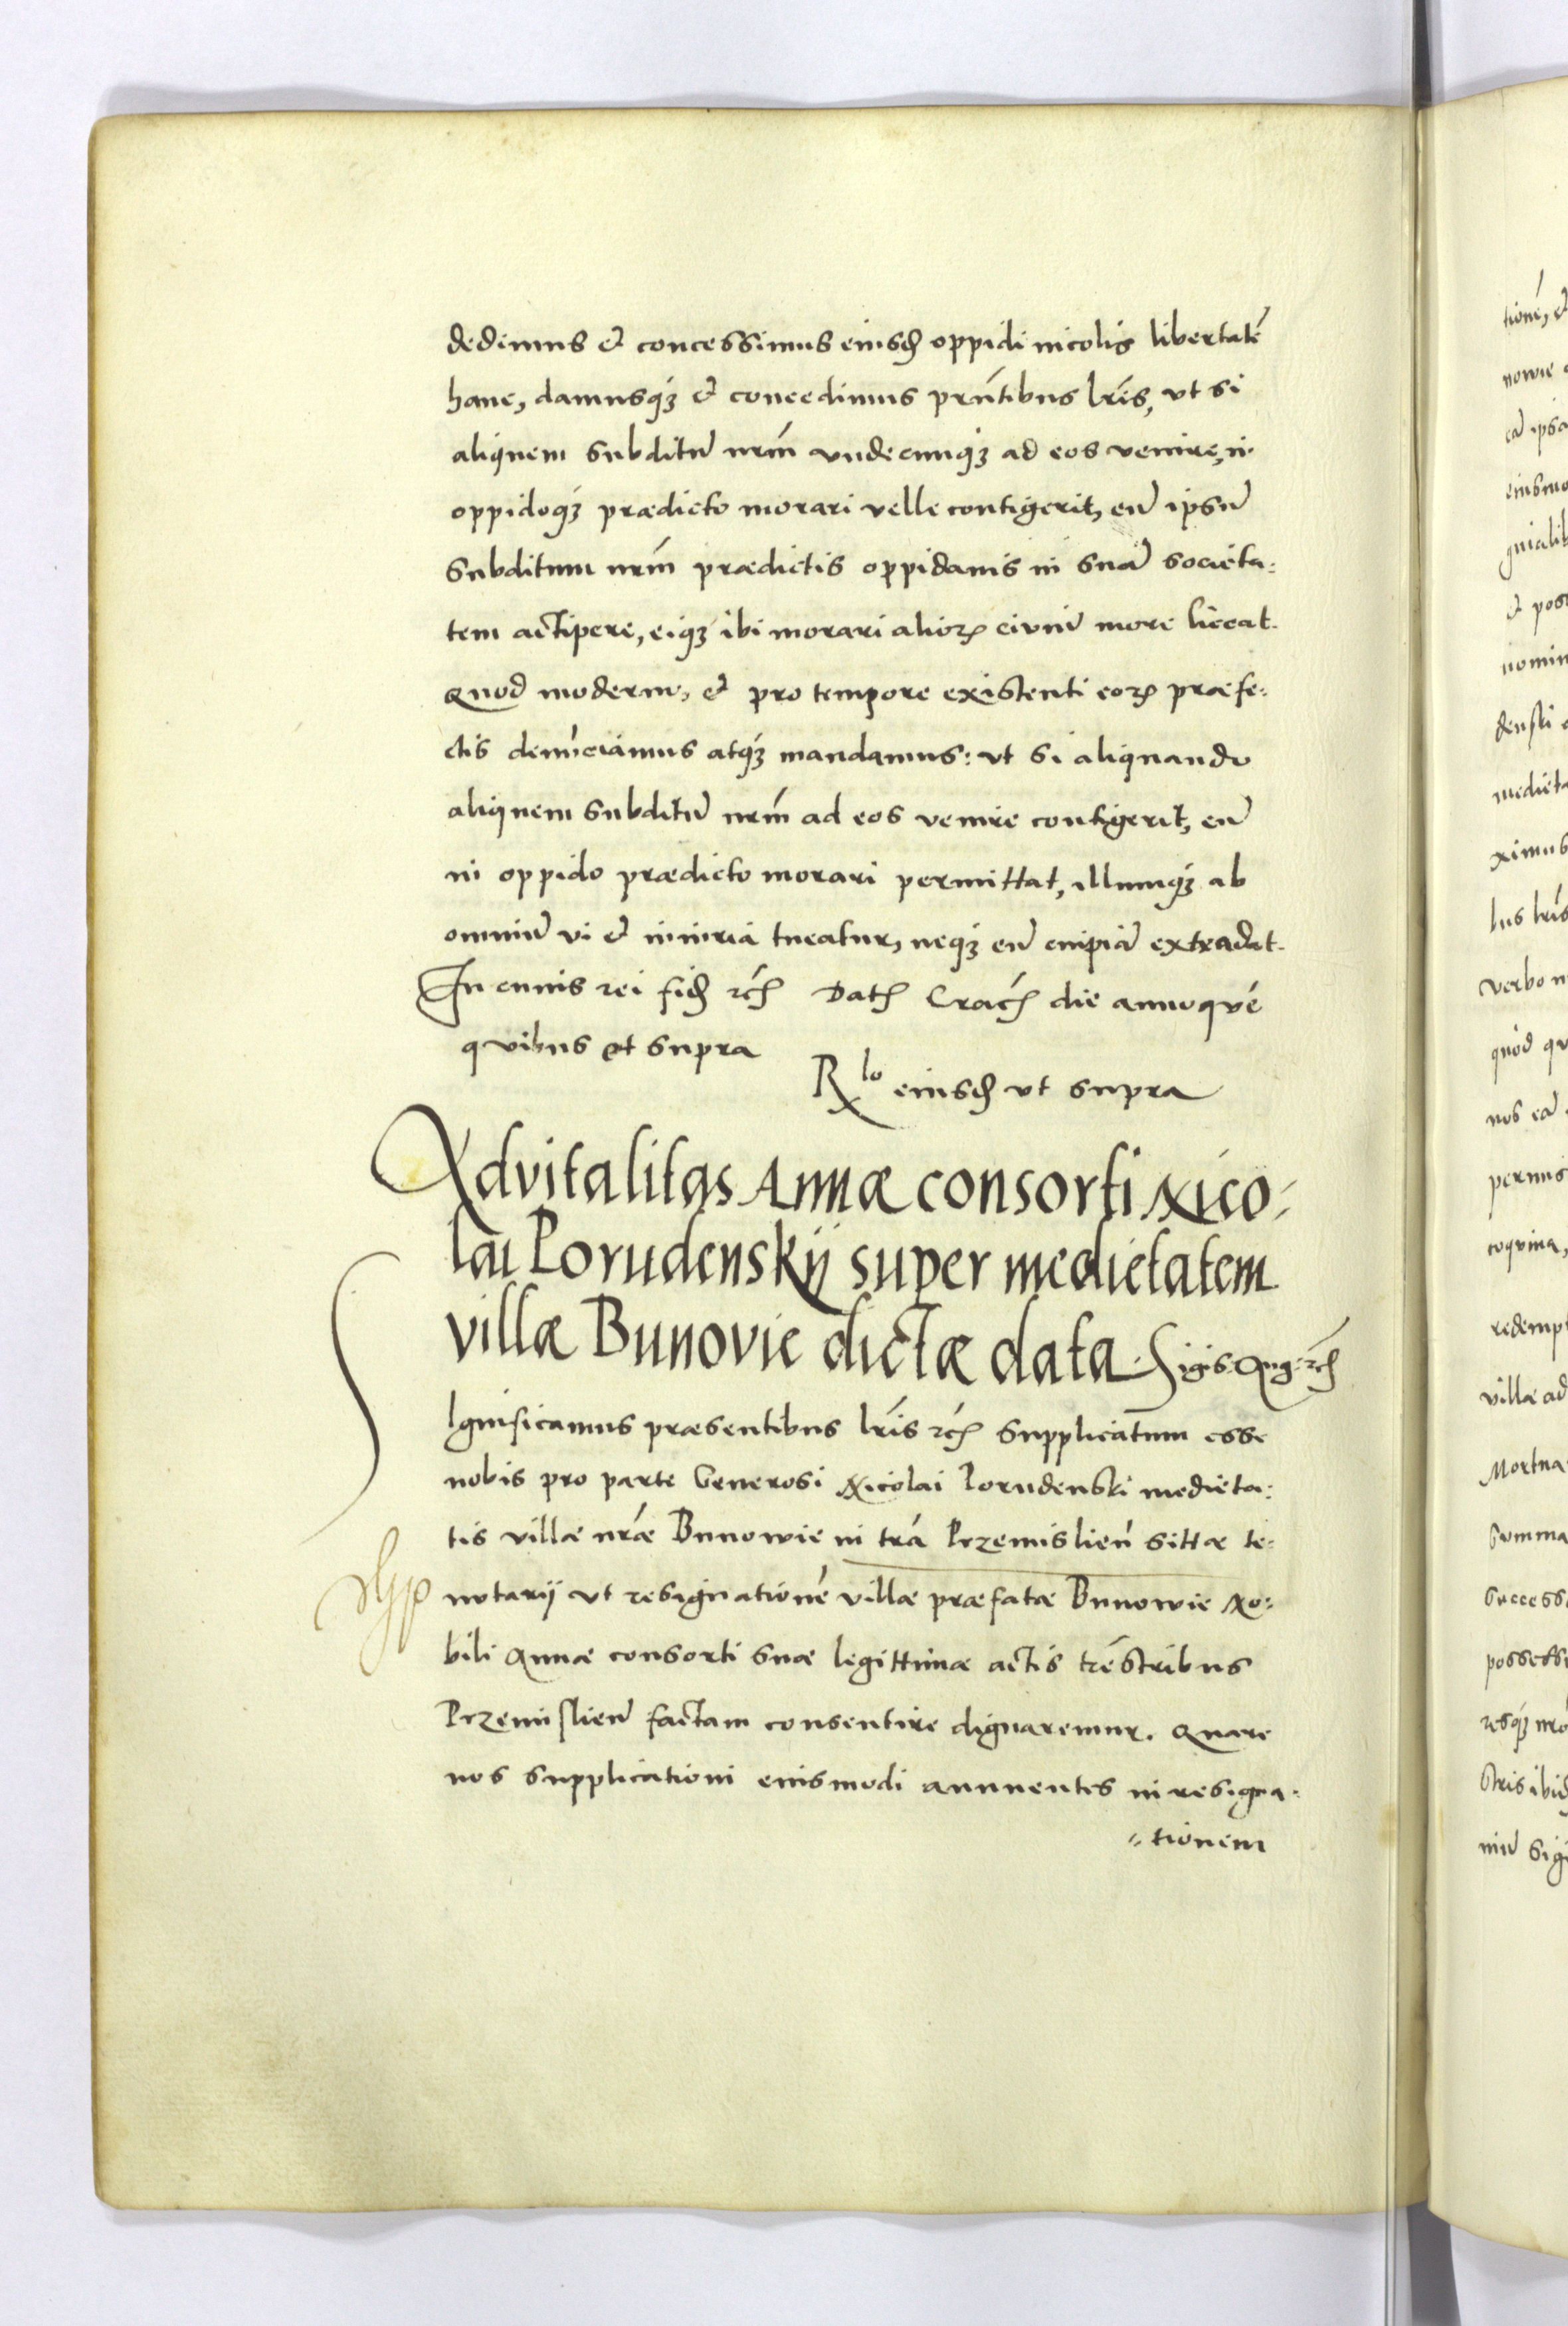 dedimus et concessimus eiusd oppidi incolis libertatē
hanc, damusq́ꝫ et concedimus prn̄tibus lr̄is, vt si
aliquem subditū nrm̄ vndecunq́ꝫ ad eos venire, in
oppidoq́ꝫ prædicto morari velle contigerit, eū ipsū
subditum nrm̄ prædictis oppidanis in suā societa:
tem accipere, eiq́ꝫ ibi morari alioꝝ ciuiū more liceat.
Quod moderno, et pro tempore existenti eoꝝ præfe:
ctis denūciamus atq́ꝫ mandamus: vt si aliquando
aliquem subditū nrm̄ ad eos venire contigerit, eū
in oppido prædicto morari permittat, illumq́ꝫ ab
omniū vi et iniuria tueatur, neqꝫ eū cuipiā extradat.
In cuius rei fid rc̄ Dat Crac̄ die annoqve
qvibus vt supra
Rlo eiusd vt supra
Advitalitas Annæ consorti Nico:
lai Porudenskij super medietatem
villæ Bunovie dictæ data. Sigis: Aug: rc̄
SIgnificamus præsentibus lr̄is rc̄ supplicatum esse
nobis pro parte Generosi Nicolai Porudenski medieta:
tis villæ nr̄æ Bunowie in tr̄a Przemislien̄ sittæ te:
notarij vt resignationē villæ præfatæ Bunowie No:
bili Annæ consorti suæ legittimæ actis tr̄estribus
Przemislien̄ factam consentire dignaremur. Quare
nos supplicationi eiusmodi annuentes in resigna:
tionem